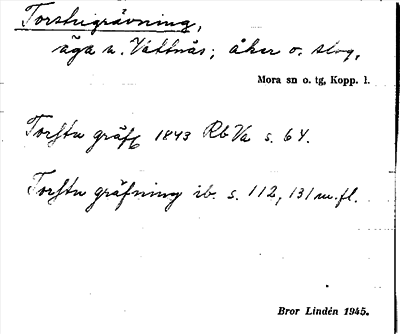 Torstugrävning,
äga n. Vattnäs; åker o. slog,
Mora sn o. tg, Kopp. l.
Torstu gräf 1843 Rb Va s. 64.
Torstu gräfning ib. s. 112, 131 m.fl.
Bror Lindén 1945.